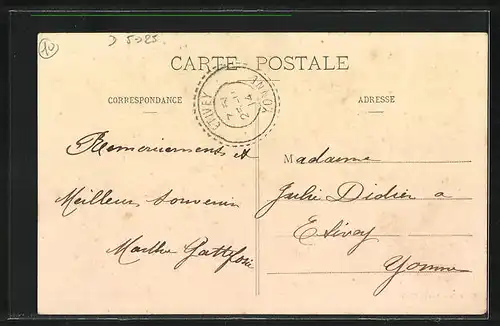 10
CARTE POSTALE
CORRESPONDANCE
ADRESSE
ETIVEY
YONNE
Remerciements et
Meilleur souvenir
Marthe
Madame
Julie Didier a
Etivey
Yonne